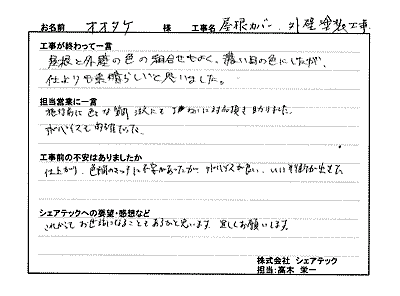 お名前 オオタケ 様 工事名 屋根カバー、外壁塗装工事
工事が終わって一言
屋根と外壁の色の組合せもよく、濃い目の色にしたが、
仕上りも素晴らしいと思いました。
担当営業に一言
施行前に色々な質問 にも丁ねいに対応頂き助かりました。
アドバイスも
工事前の不安はありましたか
仕上がり、色調のマッチに不安があったが アドバイスが良い、いい
シェアテックへの要望・感想など
これからもお世話になることもあるかと思います。宜しくお願いします。
株式会社 シェアテック
担当:高木 栄一